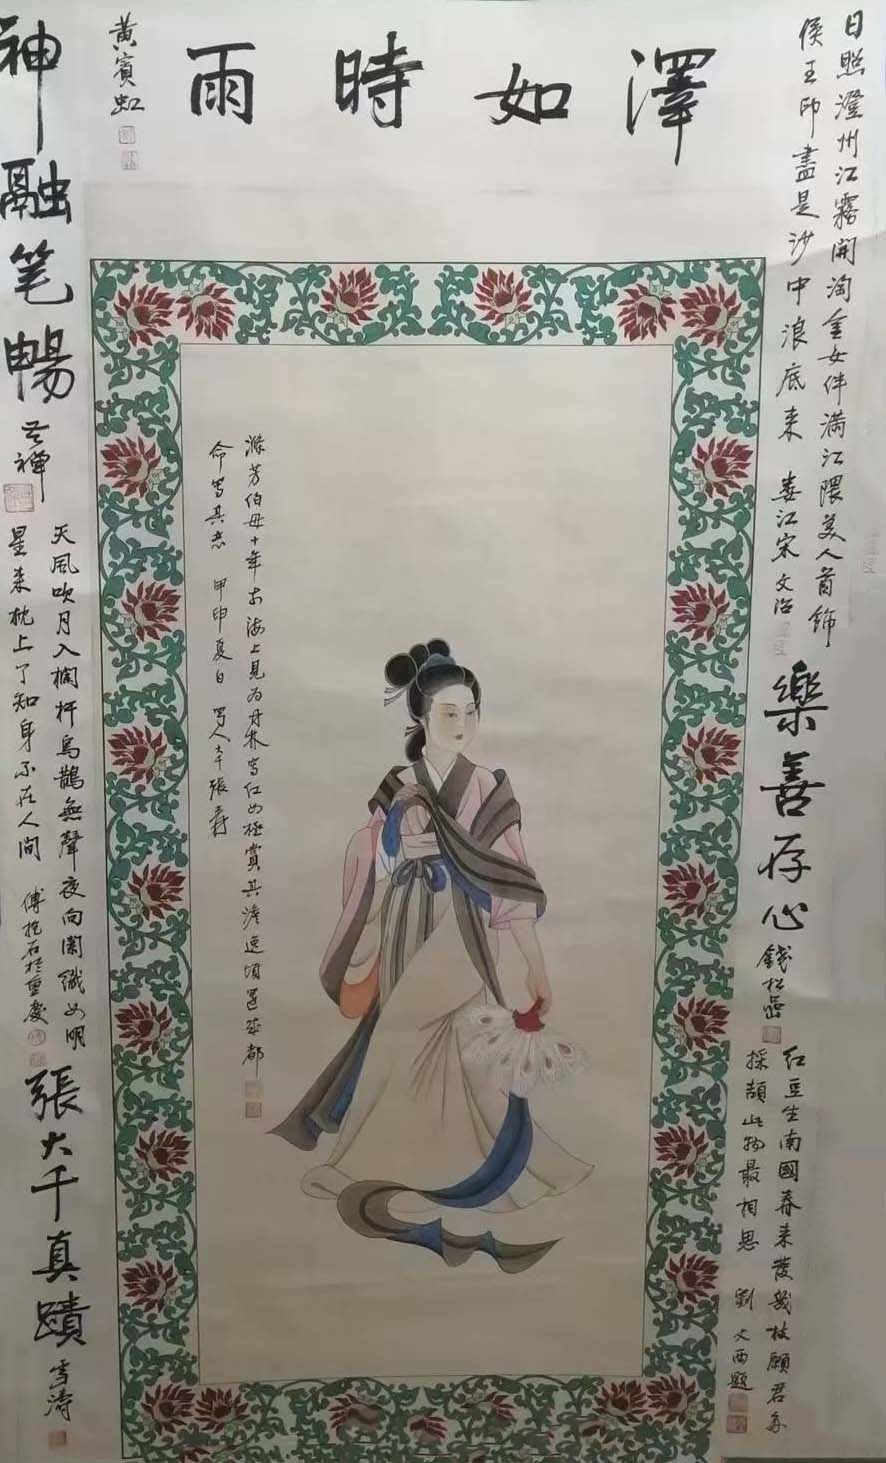 澤如時雨
黃賓虹
日照澄州江霧開淘金女伴滿江隈美人首飾
侯王印盡是沙中浪底來 婁江宋文治
樂善存心
錢松喦
紅豆生南國春來發幾枝願君多
採頡此物最相思 劉文西題
滌芳伯母十年前海上見為丹林寫紅 極賞其澹逸頃還成都
命寫其意 甲申夏日 蜀人大千張爰
神融笔暢
苦禅
天风吹月入欄杆烏鵲無聲夜向闌織女明
星来枕上了知身不在人間 傅抱石於重慶
張大千真蹟
雪濤